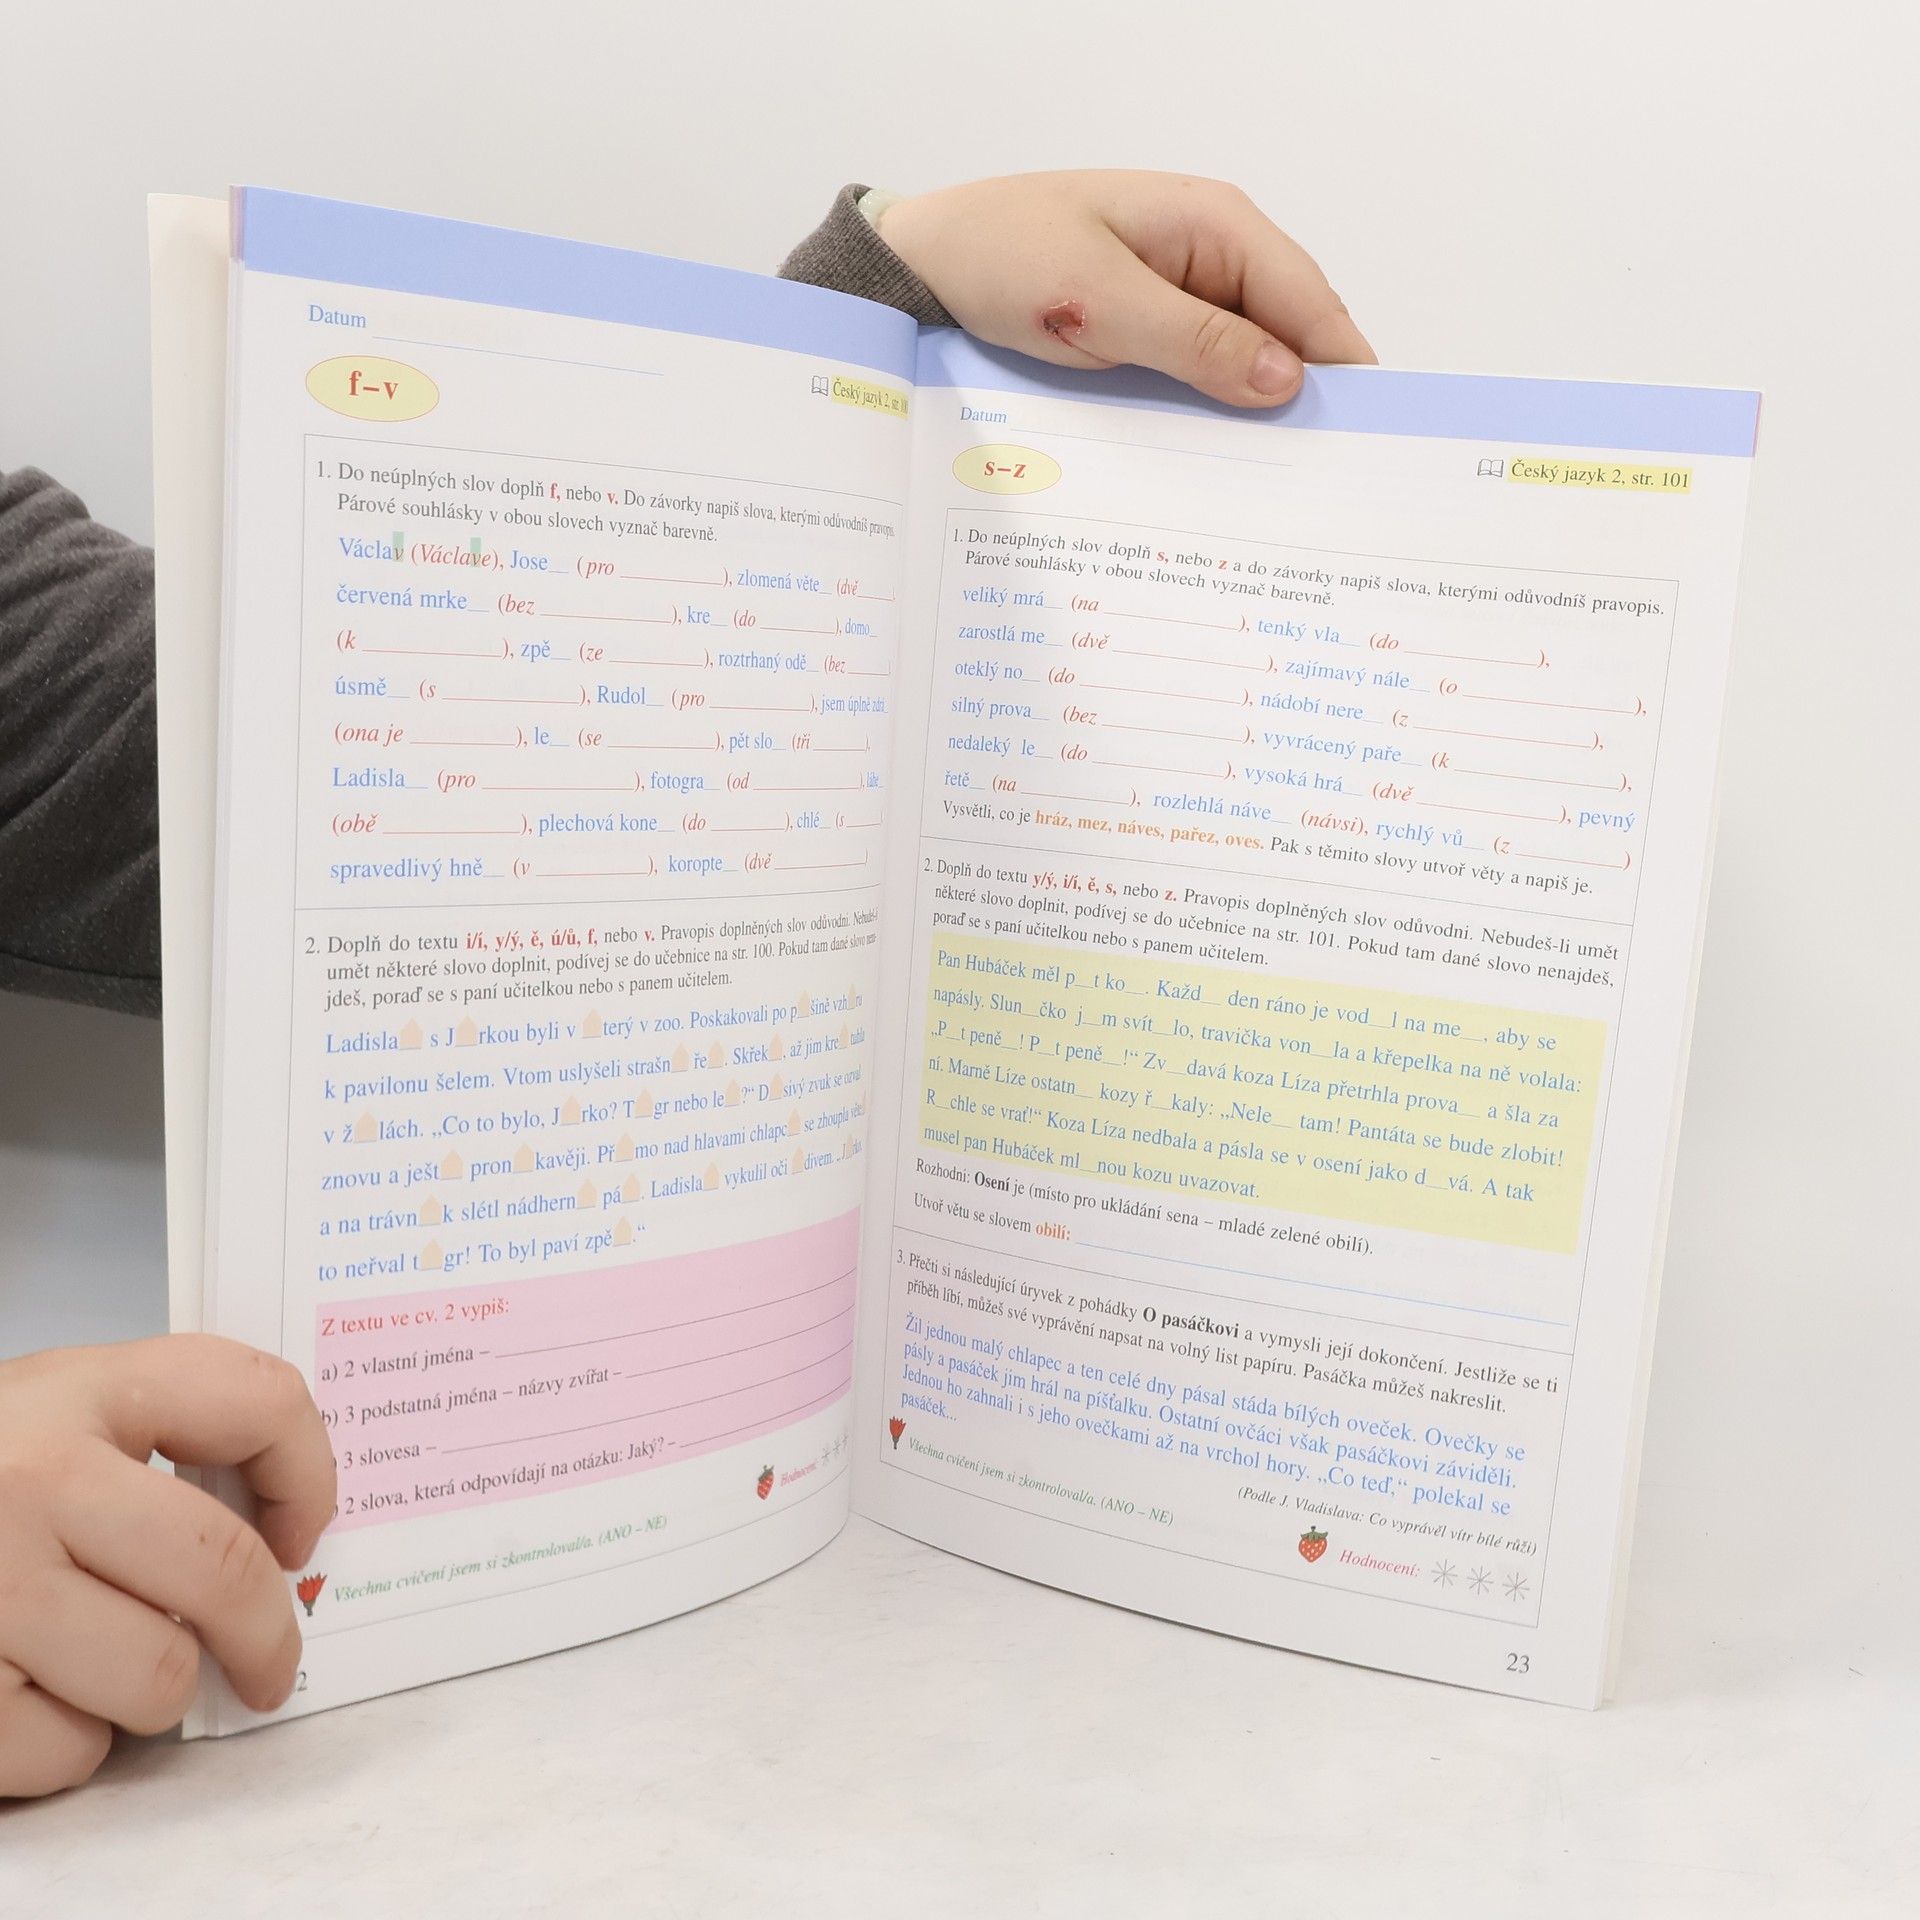 Datum
f–v
Český jazyk 2, str. 100
1. Do neúplných slov doplň f, nebo v. Do závorky napiš slova, kterými odůvodníš pravopis.
Párové souhlásky v obou slovech vyznač barevně.
Václav (Václave), Jose__ (pro ________), zlomená věte__ (dvě ____),
červená mrke__ (bez ________), kre__ (do ________), domo__
(k ________), zpě__ (ze ________), roztrhaný odě__ (bez ____
úsmě__ (s ________), Rudol__ (pro ________), jsem úplně zdrá__
(ona je ________), le__ (se ________), pět slo__ (tři ____),
Ladisla__ (pro ________), fotogra__ (od ________), láhe__
(obě ________), plechová kone__ (do ________), chlé__ (s ____)
spravedlivý hně__ (v ________), koropte__ (dvě ________)
2. Doplň do textu i/í, y/ý, ě, ú/ů, f, nebo v. Pravopis doplněných slov odůvodni. Nebudeš-li
umět některé slovo doplnit, podívej se do učebnice na str. 100. Pokud tam dané slovo nena-
jdeš, poraď se s paní učitelkou nebo s panem učitelem.
Ladisla__ s J__rkou byli v __terý v zoo. Poskakovali po p__šině vzh__ru
k pavilonu šelem. Vtom uslyšeli strašn__ ře__. Skřek__, až jim kre__ tuhla
v ž__lách. „Co to bylo, J__rko? T__gr nebo le__?“ D__sivý zvuk se ozval
znovu a ješt__ pron__kavěji. Př__mo nad hlavami chlapc__ se zhoupla věte__
a na trávn__k slétl nádhern__ pá__. Ladisla__ vykulil oči __divem. „J__rko,
to neřval t__gr! To byl paví zpě__.“
Z textu ve cv. 2 vypiš:
a) 2 vlastní jména –
b) 3 podstatná jména – názvy zvířat –
) 3 slovesa –
) 2 slova, která odpovídají na otázku: Jaký? –
Všechna cvičení jsem si zkontroloval/a. (ANO – NE)
Hodnocení:
2
Datum
s–z
Český jazyk 2, str. 101
1. Do neúplných slov doplň s, nebo z a do závorky napiš slova, kterými odůvodníš pravopis.
Párové souhlásky v obou slovech vyznač barevně.
veliký mrá__ (na ________), tenký vla__ (do ________),
zarostlá me__ (dvě ________), zajímavý nále__ (o ________),
oteklý no__ (do ________), nádobí nere__ (z ________),
silný prova__ (bez ________), vyvrácený paře__ (k ________),
nedaleký le__ (do ________), vysoká hrá__ (dvě ________), pevný
řetě__ (na ________), rozlehlá náve__ (návsi), rychlý vů__ (z ________)
Vysvětli, co je hráz, mez, náves, pařez, oves. Pak s těmito slovy utvoř věty a napiš je.
2. Doplň do textu y/ý, i/í, ě, s, nebo z. Pravopis doplněných slov odůvodni. Nebudeš-li umět
některé slovo doplnit, podívej se do učebnice na str. 101. Pokud tam dané slovo nenajdeš,
poraď se s paní učitelkou nebo s panem učitelem.
Pan Hubáček měl p__t ko__. Každ__ den ráno je vod__l na me__, aby se
napásly. Slun__čko j__m svít__lo, travička von__la a křepelka na ně volala:
„P__t peně__! P__t peně__!“ Zv__davá koza Líza přetrhla prova__ a šla za
ní. Marně Líze ostatn__ kozy ř__kaly: „Nele__ tam! Pantáta se bude zlobit!
R__chle se vrať!“ Koza Líza nedbala a pásla se v osení jako d__vá. A tak
musel pan Hubáček ml__nou kozu uvazovat.
Rozhodni: Osení je (místo pro ukládání sena – mladé zelené obilí).
Utvoř větu se slovem obilí:
3. Přečti si následující úryvek z pohádky O pasáčkovi a vymysli její dokončení. Jestliže se ti
příběh líbí, můžeš své vyprávění napsat na volný list papíru. Pasáčka můžeš nakreslit.
Žil jednou malý chlapec a ten celé dny pásal stáda bílých oveček. Ovečky se
pásly a pasáček jim hrál na píšťalku. Ostatní ovčáci však pasáčkovi záviděli.
Jednou ho zahnali i s jeho ovečkami až na vrchol hory. „Co teď,“ polekal se
pasáček...
(Podle J. Vladislava: Co vyprávěl vítr bílé růži)
Všechna cvičení jsem si zkontroloval/a. (ANO – NE)
Hodnocení:
23